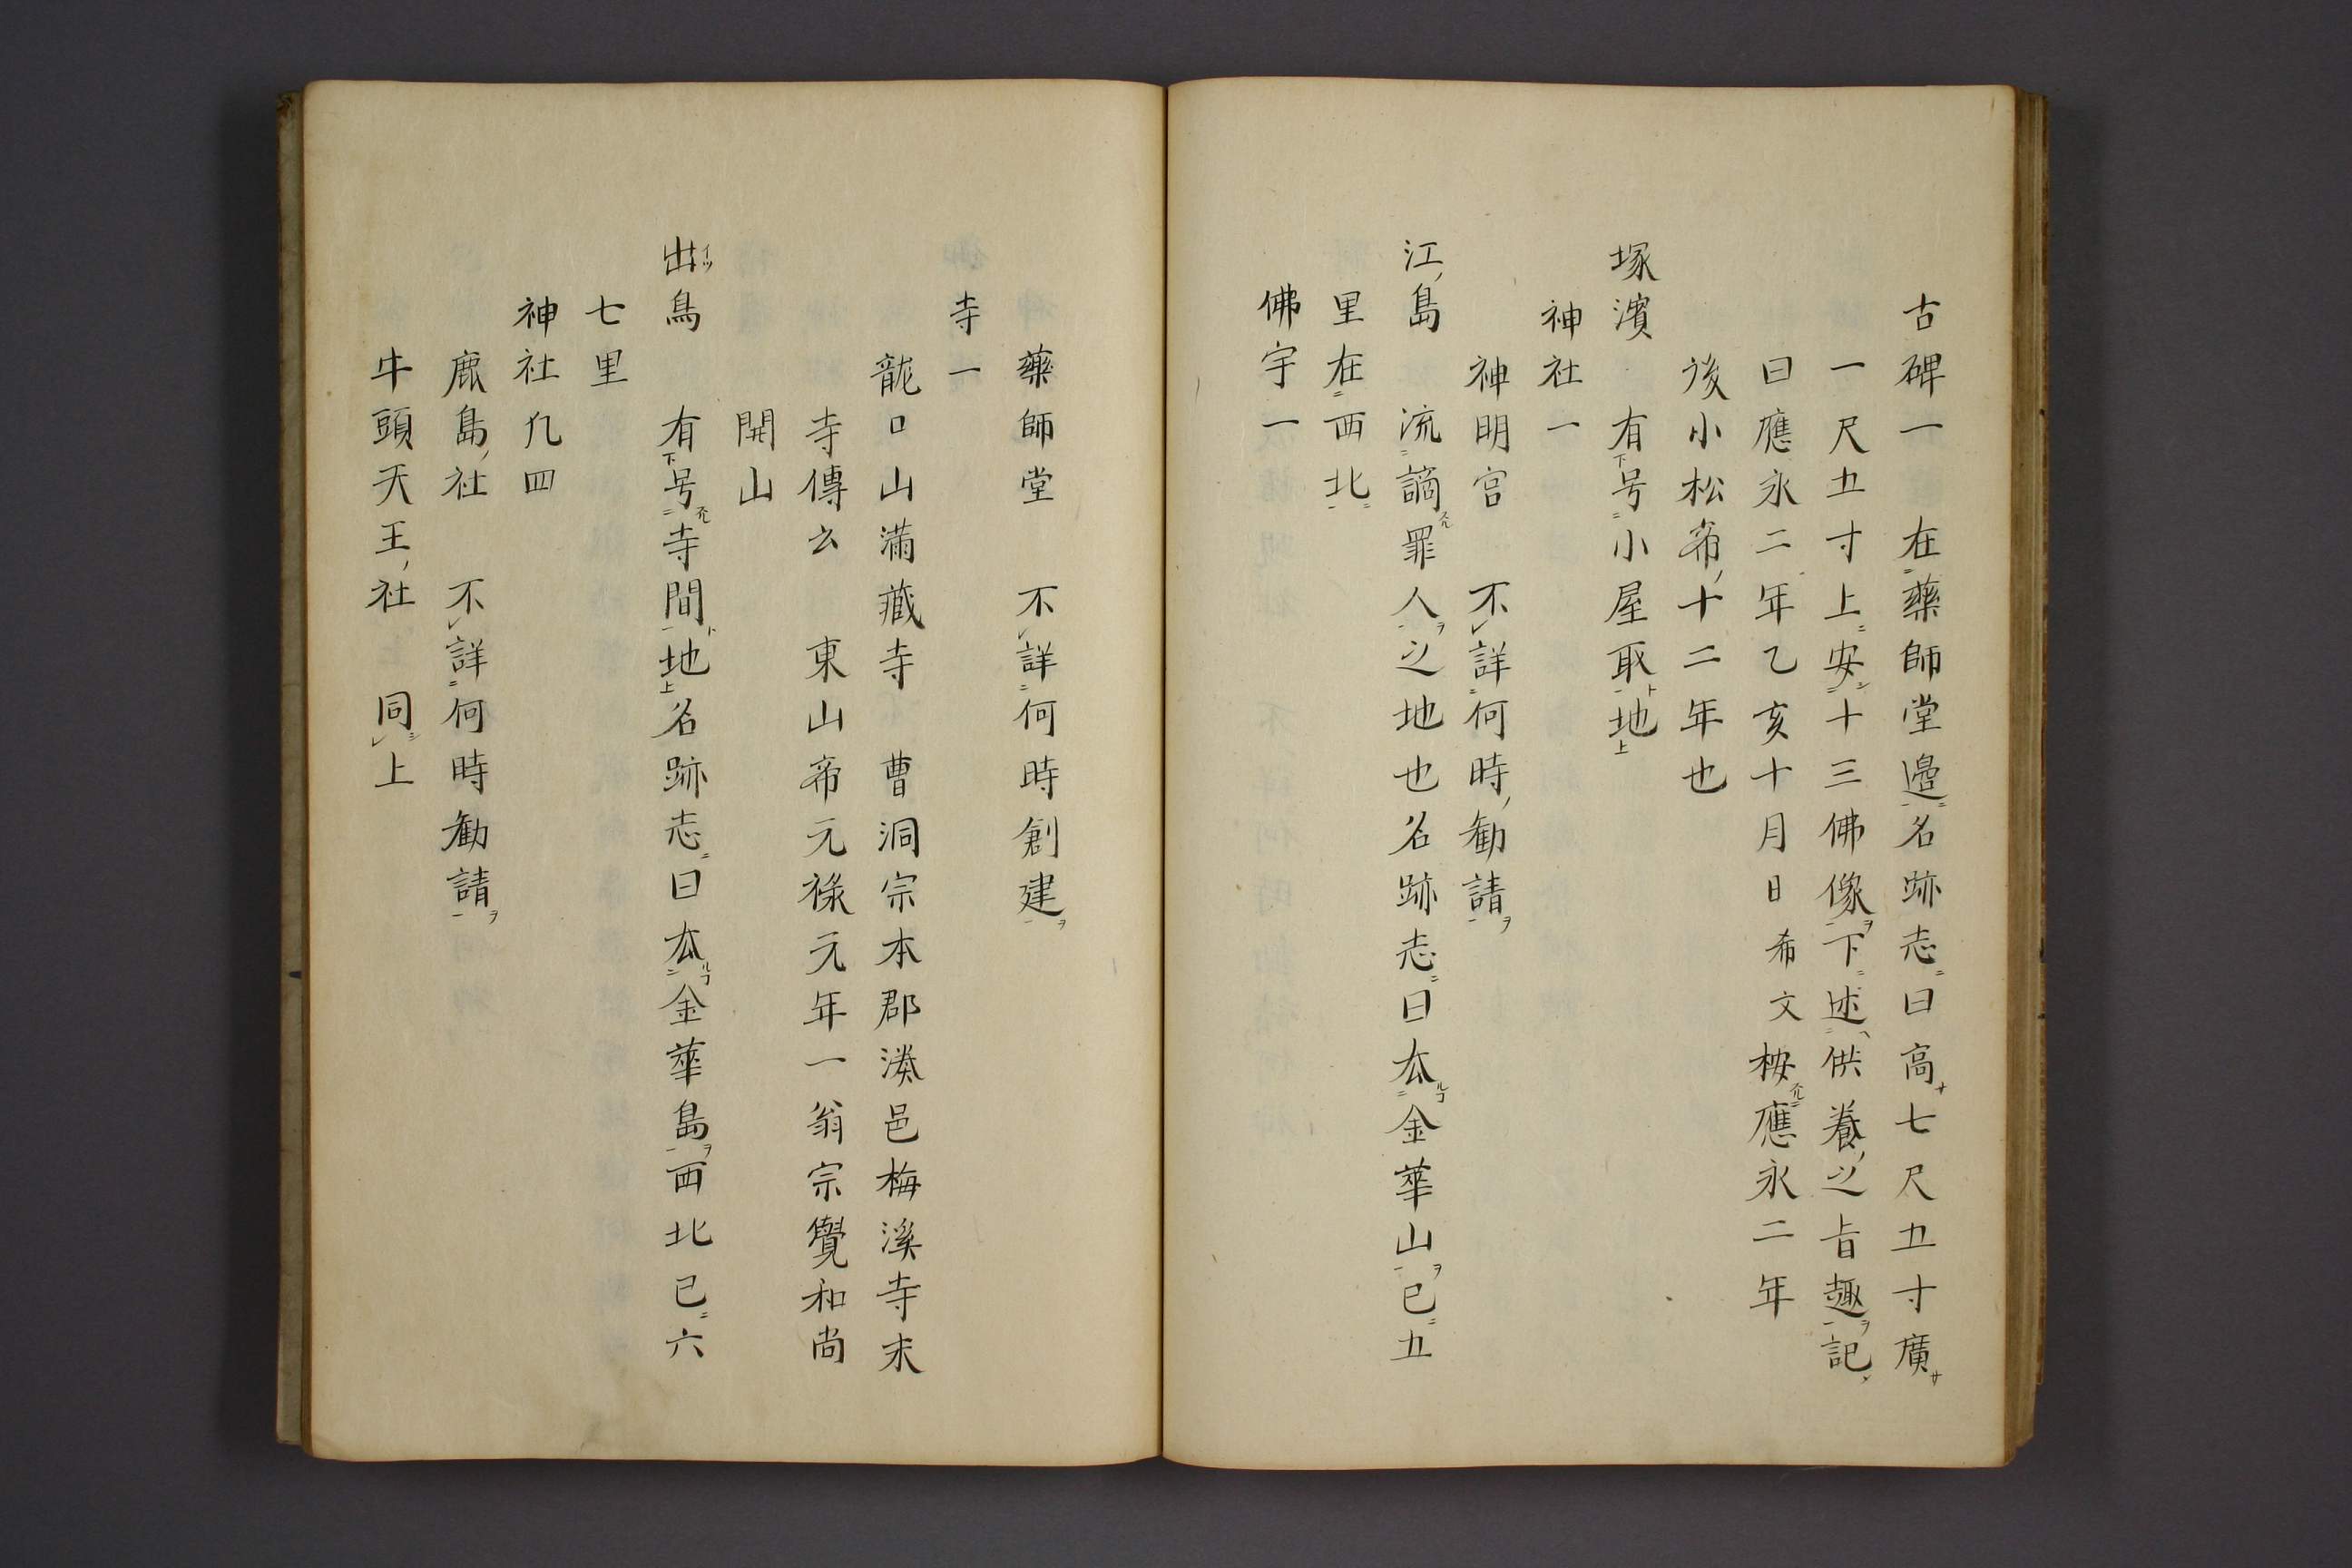 古碑一　在藥師堂邉名跡志曰高七尺五寸廣
一尺五寸上安十三佛像下述供養之旨趣記
曰應永二年乙亥十月日希文桉應永二年
後小松帝十二年也
塚濱　有号小屋取地
神社一
神明宮　不詳何時勸請
江島　流謫罪人之地也名跡志曰厺金華山已五
里在西北
佛宇一
藥師堂　不詳何時創建
寺一
龍口山滿藏寺　曹洞宗本郡湊邑梅溪寺末
寺傳云　東山帝元祿元年一翁宗覺和尚
開山
出島　有号寺間地名跡志曰厺金華島西北已六
七里
神社凢四
鹿島社　不詳何時勸請
牛頭天王社　同上